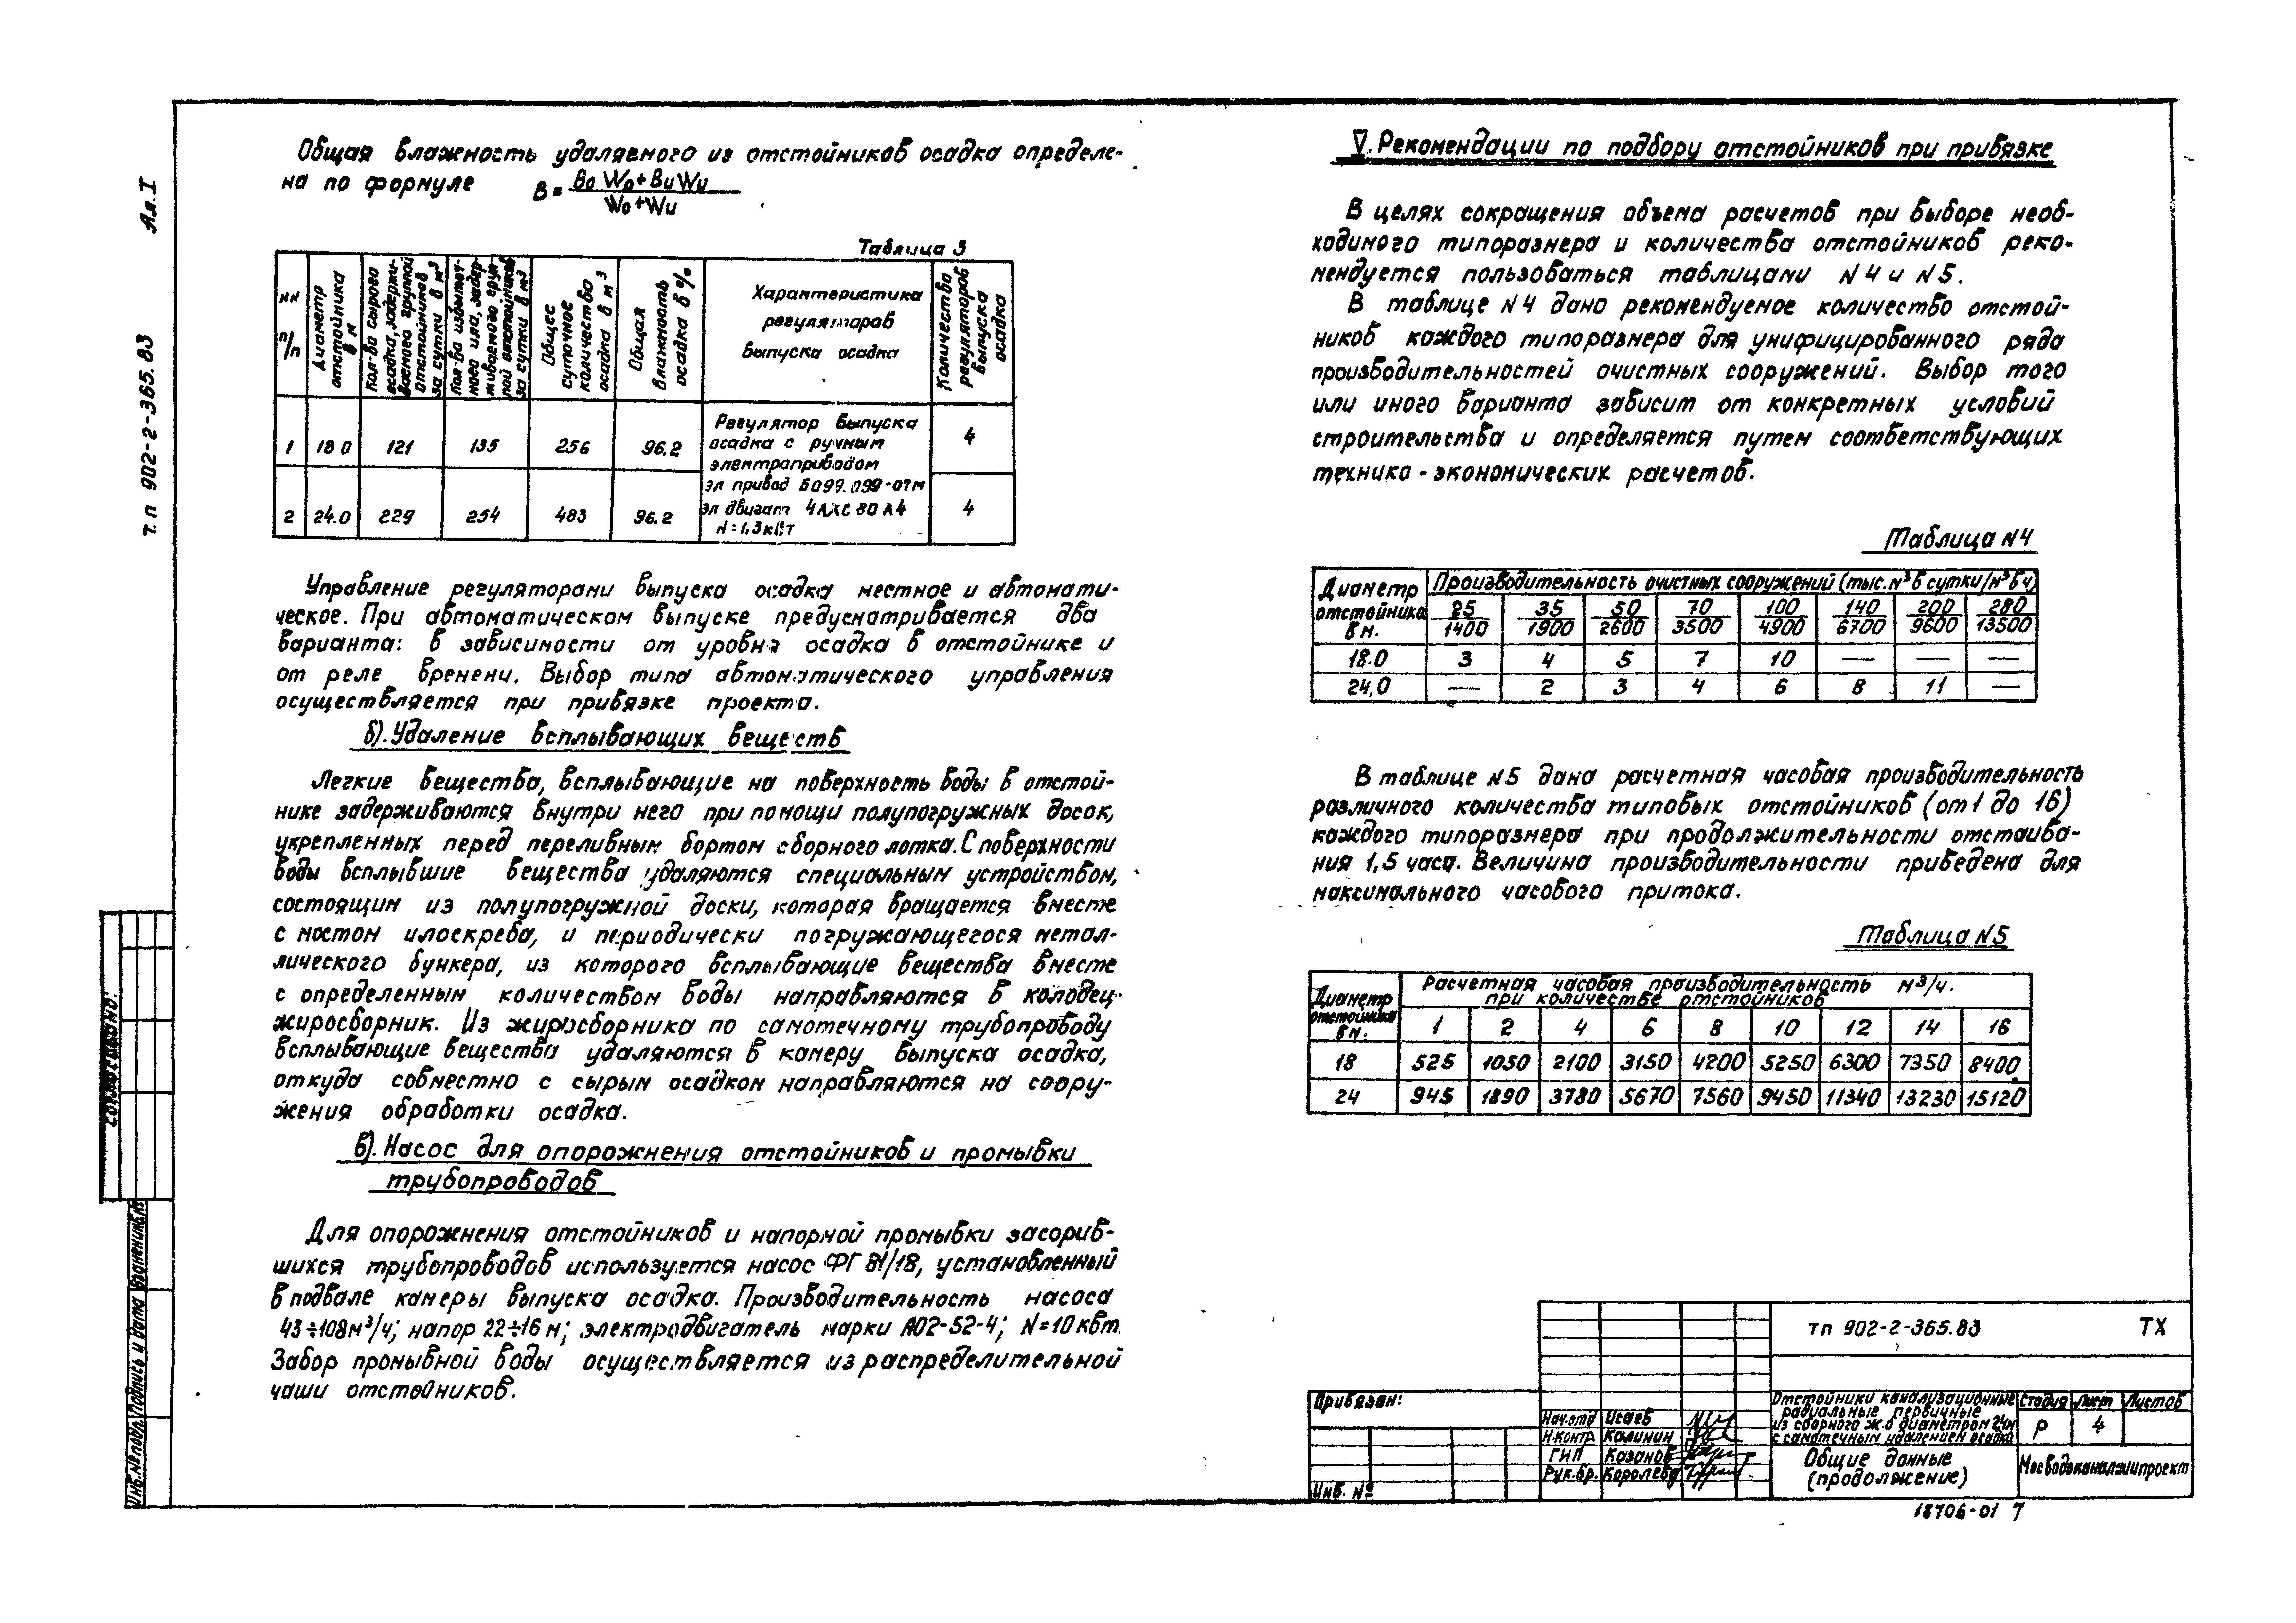 Ал. I
т.п 902-2-365.83
Общая влажность удаляемого из отстойников осадка определе-
на по формуле B = BоWо+BиWи / Wо+Wи
Таблица 3
NN п/п
Диаметр отстойника в м
Кол-во сырого осадка, задержи-ваемого группой отстойников за сутки в м3
Кол-во избыточ-ного ила, задер-живаемого груп-пой отстойников за сутки в м3
Общее суточное количество осадка в м3
Общая влажность осадка в %
Характеристика регуляторов выпуска осадка
Количество регуляторов выпуска осадка
1 18.0 121 135 256 96.2 4
2 24.0 229 254 483 96.2 4
Регулятор выпуска
осадка с ручным
электроприводом
эл привод Б099.099-07м
эл двигат 4АХС 80 А4
N=1,3кВт
Управление регуляторами выпуска осадка местное и автомати-
ческое. При автоматическом выпуске предусматривается два
варианта: в зависимости от уровня осадка в отстойнике и
от реле времени. Выбор типа автоматического управления
осуществляется при привязке проекта.
б). Удаление всплывающих веществ
Легкие вещества, всплывающие на поверхность воды в отстой-
нике задерживаются внутри него при помощи полупогружных досок,
укрепленных перед переливным бортом сборного лотка. С поверхности
воды всплывшие вещества удаляются специальным устройством,
состоящим из полупогружной доски, которая вращается вместе
с мостом илоскреба, и периодически погружающегося метал-
лического бункера, из которого всплывающие вещества вместе
с определенным количеством воды направляются в колодец-
жиросборник. Из жиросборника по самотечному трубопроводу
всплывающие вещества удаляются в камеру выпуска осадка,
откуда совместно с сырым осадком направляются на соору-
жения обработки осадка.
в). Насос для опорожнения отстойников и промывки
трубопроводов
Для опорожнения отстойников и напорной промывки засорив-
шихся трубопроводов используется насос ФГ 81/18, установленный
в подвале камеры выпуска осадка. Производительность насоса
43÷108м³/ч; напор 22÷16 м; электродвигатель марки А02-52-4; N=10квт.
Забор промывной воды осуществляется из распределительной
чаши отстойников.
V. Рекомендации по подбору отстойников при привязке
В целях сокращения объема расчетов при выборе необ-
ходимого типоразмера и количества отстойников реко-
мендуется пользоваться таблицами N4 и N5.
В таблице N4 дано рекомендуемое количество отстой-
ников каждого типоразмера для унифицированного ряда
производительностей очистных сооружений. Выбор того
или иного варианта зависит от конкретных условий
строительства и определяется путем соответствующих
технико-экономических расчетов.
Таблица N4
Диаметр отстойника в м.
Производительность очистных сооружений (тыс. м³ в сутки/м³ в ч)
25/1400 35/1900 50/2600 70/3500 100/4900 140/6700 200/9600 280/13500
18.0 3 4 5 7 10 — — —
24,0 — 2 3 4 6 8 11 —
В таблице N5 дана расчетная часовая производительность
различного количества типовых отстойников (от 1 до 16)
каждого типоразмера при продолжительности отстаива-
ния 1,5 часа. Величина производительности приведена для
максимального часового притока.
Таблица N5
Диаметр отстойника в м.
Расчетная часовая производительность м³/ч.
при количестве отстойников
1 2 4 6 8 10 12 14 16
18 525 1050 2100 3150 4200 5250 6300 7350 8400
24 945 1890 3780 5670 7560 9450 11340 13230 15120
тп 902-2-365.83 ТХ
Привязан:
Инв. №
Нач.отд Исаев
Н.контр. Калинин
ГИП Казанов
Рук.бр. Королева
Отстойники канализационные
радиальные первичные
из сборного ж.б диаметром 24м
с самотечным удалением осадка
Стадия Лист Листов
Р 4
Общие данные
(продолжение)
Мосводоканалниипроект
18706-01 7
Согласовано:
Взамен инв.№
Подпись и дата
Инв.№подл.